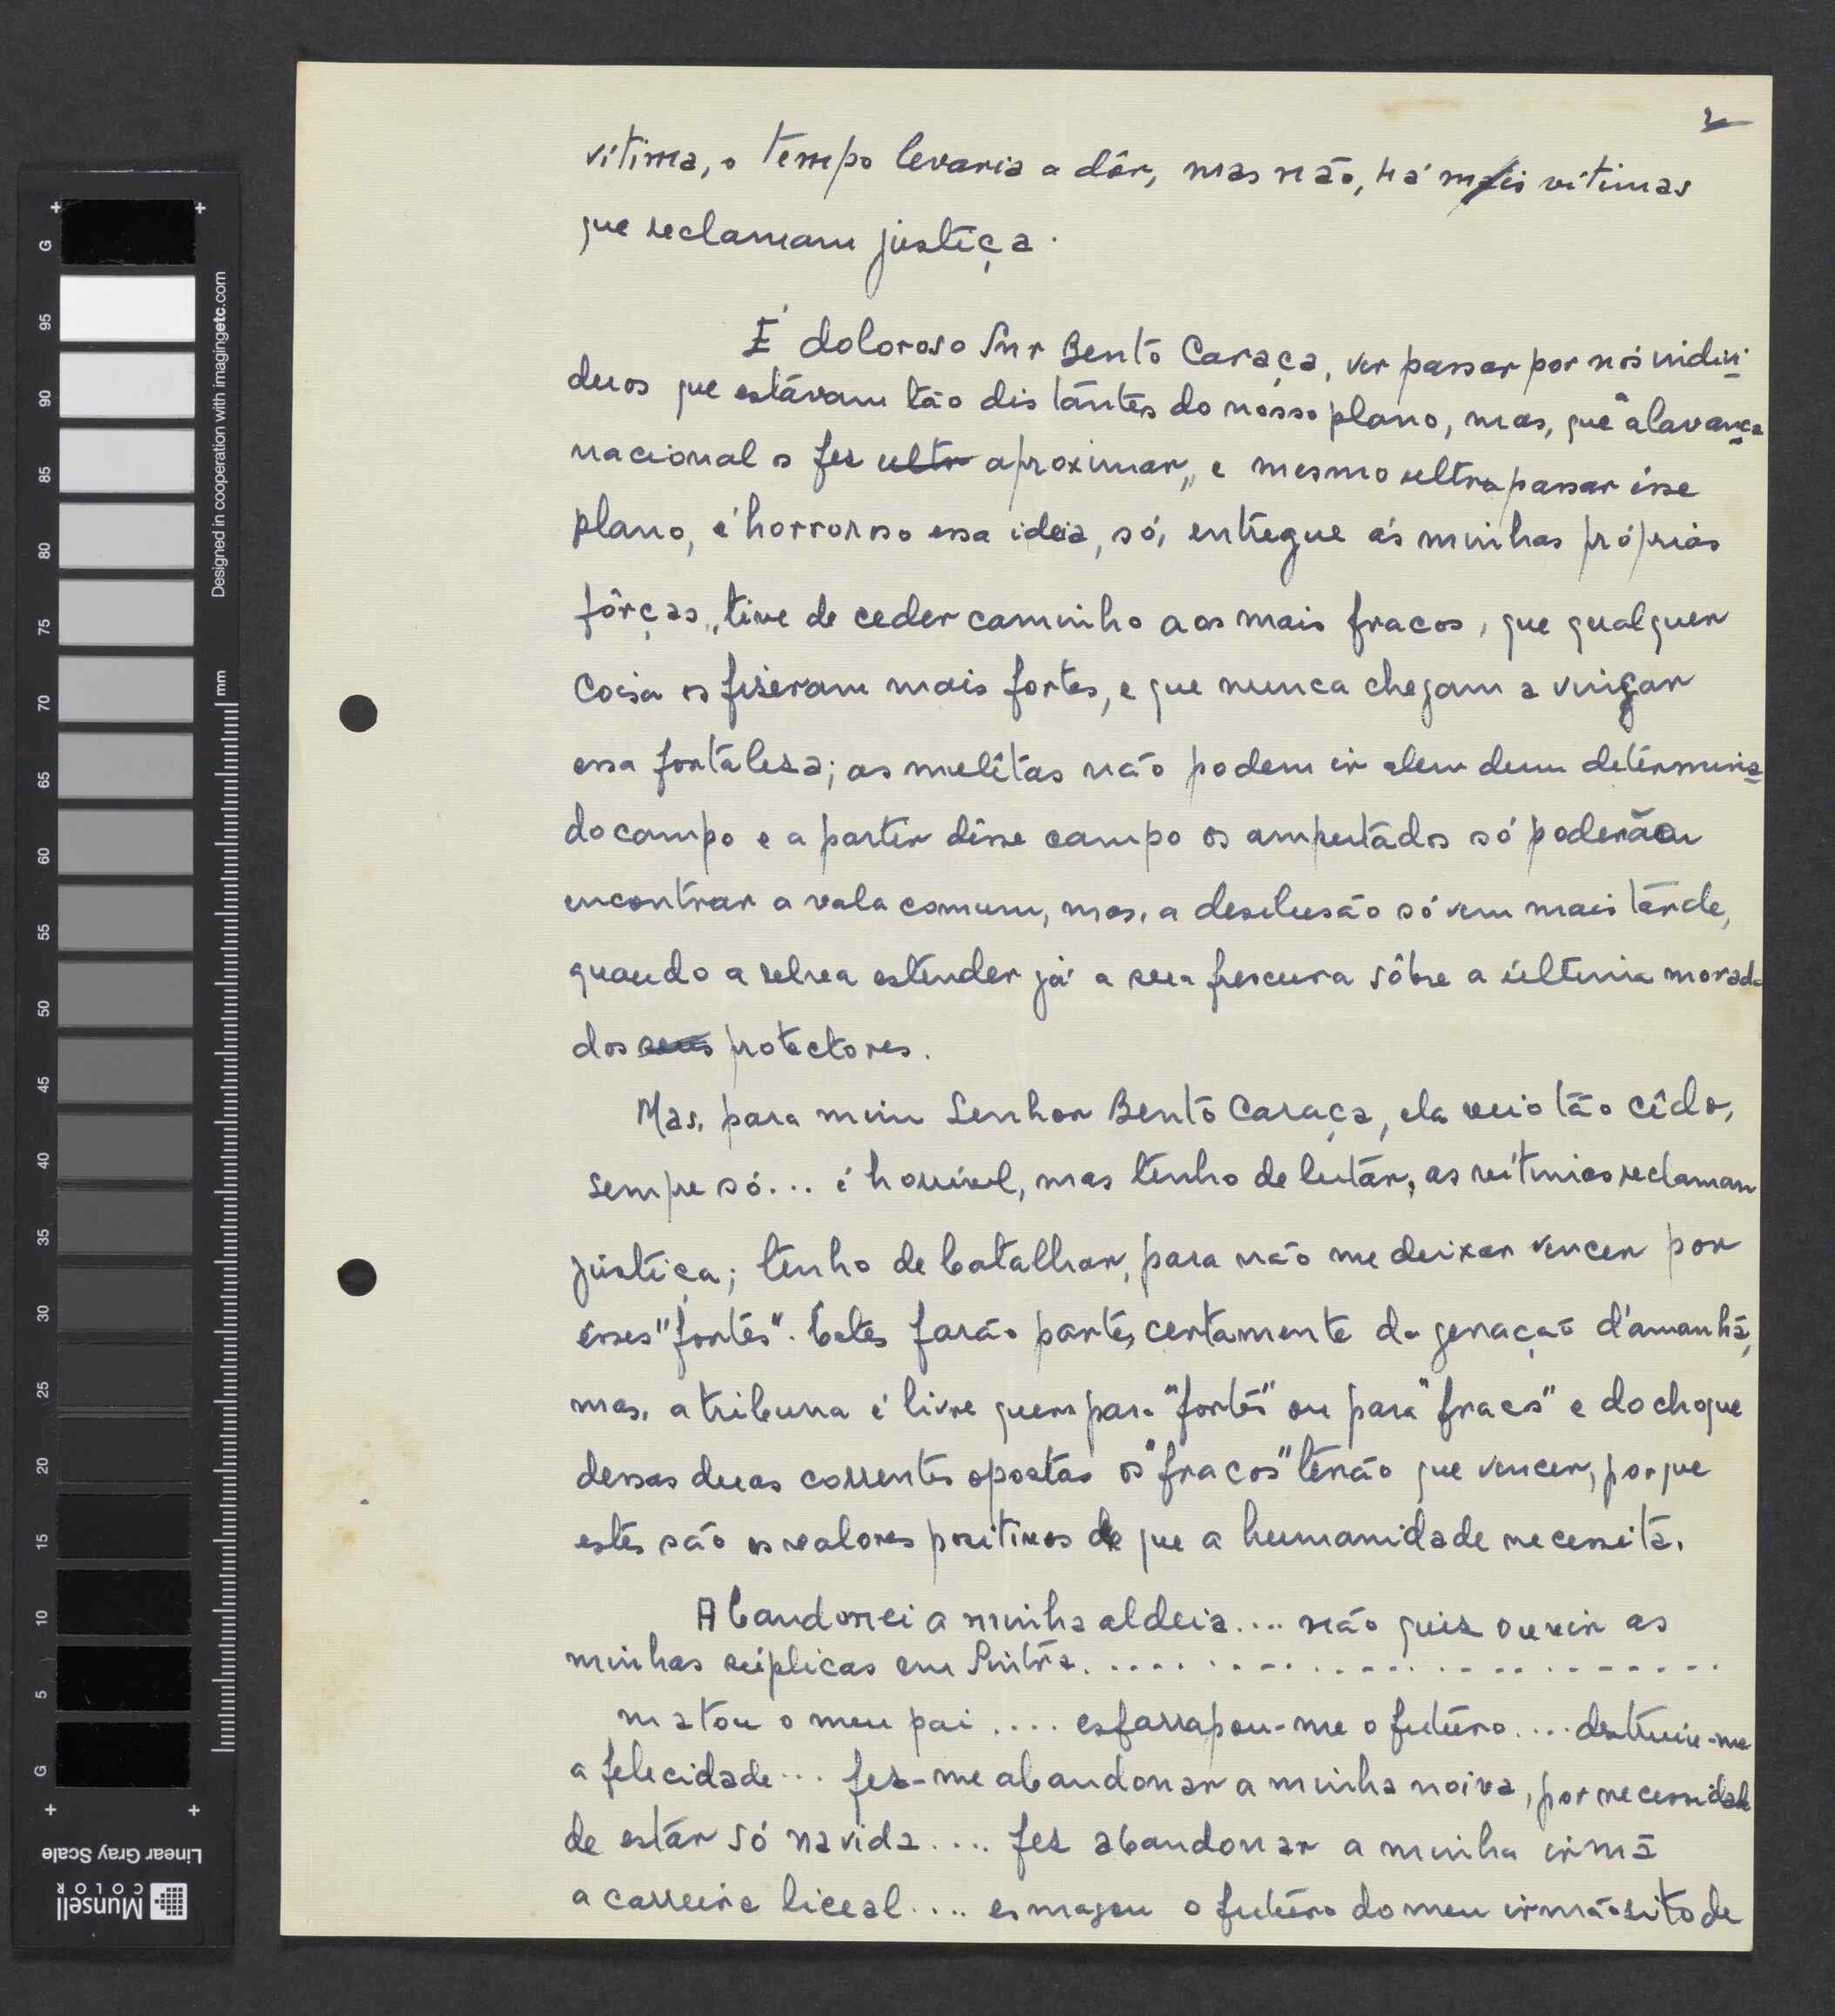 2
vítima, o tempo levaria a dôr, mas não, há mais vítimas
que reclamam justiça.
É doloroso Snr Bento Caraça, ver passar por nós indiví-
duos que estávam tão distântes do nosso plano, mas, que a alavanca
nacional o fez ultr aproximar, e mesmo ultrapassar êsse
plano, é horroroso essa ideia, só, entregue ás minhas próprias
fôrças, tive de ceder caminho aos mais fracos, que qualquer
coisa os fiseram mais fortes, e que nunca chegam a vingar
essa fortalesa; as mulêtas não podem ir alem dum determina-
do campo e a partir dêsse campo os amputádos só poderão
encontrar a vala comum, mas, a desilusão só vem mais tárde,
quando a relva estender já a sua frescura sôbre a última morada
dos seus protectores.
Mas, para mim Senhor Bento Caraça, ela veio tão cêdo,
sempre só... é horrível, mas tenho de lutár, as vítimas reclamam
justiça; tenho de batalhar, para não me deixar vencer por
êsses "fortes". Estes farão parte, certamente da geração d'amanhã,
mas, a tribuna é livre quer para "fortes" ou para "fracos" e do choque
dessas duas correntes opostas os "fracos" terão que vencer, porque
estes são os valores positivos de que a humanidade necessita.
Abandonei a minha aldeia.... não quiz ouvir as
minhas súplicas em Sintra. . . . . . . . . . . . . . . . . . . . . . . .
matou o meu pai .... esfarrapou-me o futúro.... destruiu-me
a felecidade... fez-me abandonar a minha noiva, por necessidade
de estár só na vida.... fez abandonar a minha irmã
a carreira liceal.... esmagou o futúro do meu irmãosito de
Designed in cooperation with imagingetc.com
mm
G 95 90 85 80 75 70 65 60 55 50 45 40 35 30 25 20 15 10 5 G
Linear Gray Scale
Munsell
COLOR